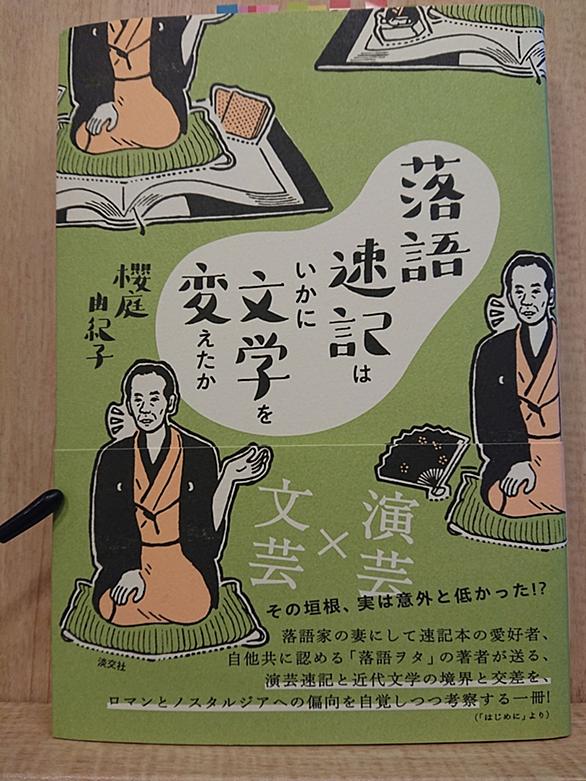 落語
速記は
いかに
文学を
変えたか
櫻庭
由紀子
演芸
×
文芸
その垣根、実は意外と低かった!?
落語家の妻にして速記本の愛好者、
自他共に認める「落語ヲタ」の著者が送る、
演芸速記と近代文学の境界と交差を、
ロマンとノスタルジアへの偏向を自覚しつつ考察する一冊!
(「はじめに」より)
淡交社